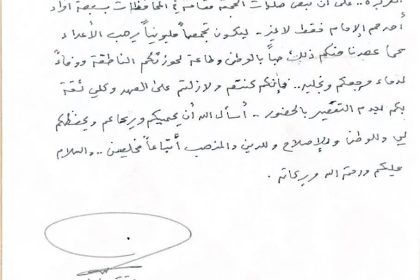 على ان تبقى صلوات الجمعة مقامة في المحافظات بسبعة افراد
احدهم الإمام فقط لا غير .. ليكون تجمعاً مليونياً يرهب الأعداء
كما عهدنا منكم ذلك حباً بالوطن وطاعة لحوزتكم الناطقة ووفاءً
لدماء مرجعكم ونجليه .. فإنكم كنتم ولازلتم على العهد وكلي ثقة
بكم لعدم التقصير بالحضور .. أسأل الله أن يحميكم ويرعاكم ويحفظكم
لي وللوطن وللإصلاح وللدين والمذهب أتباعاً مخلصين .. والسلام
عليكم ورحمة الله وبركاته .